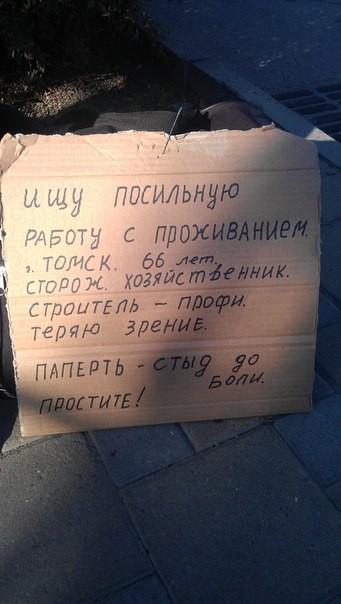 ищу посильную
работу с проживанием.
г. Томск. 66 лет.
сторож. хозяйственник.
строитель - профи.
теряю зрение.
паперть - стыд до
боли.
простите!